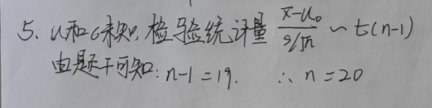 5. u和σ未知,检验统计量 x̄-u₀ / s/√n ~ t(n-1)
由题干可知: n-1=19. ∴ n=20